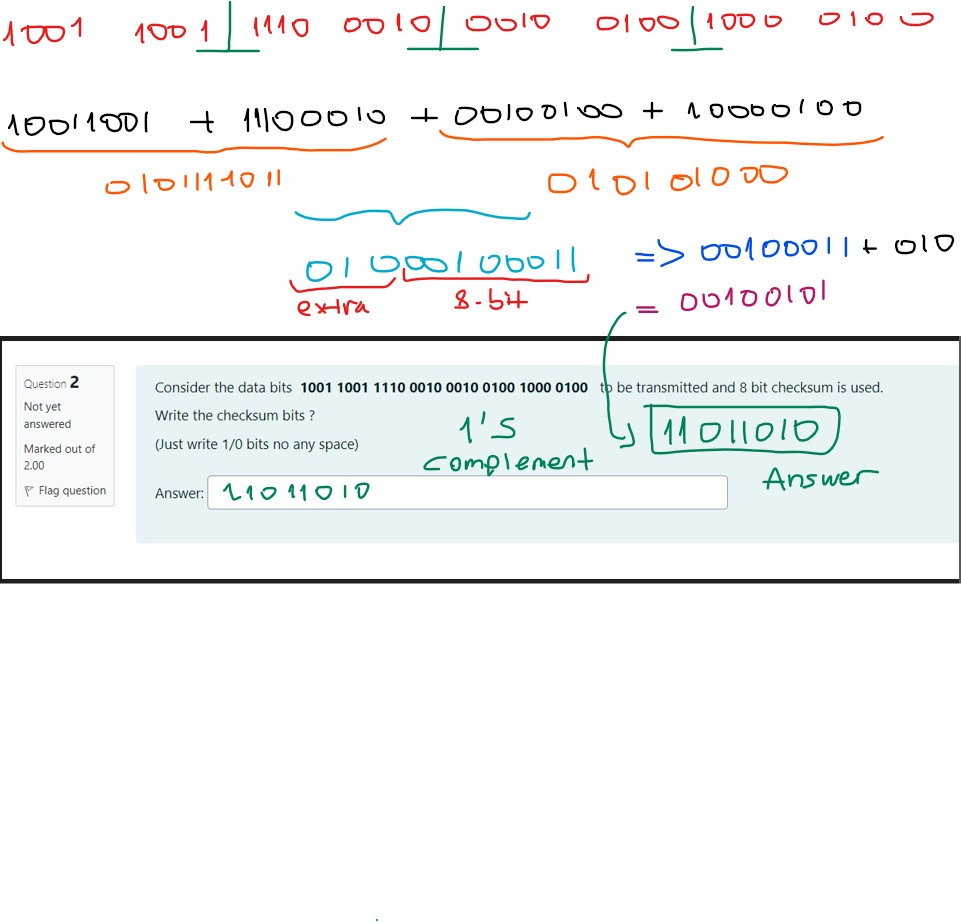 1001 1001 1110 0010 0010 0100 1000 0100
10011001 + 11100010 + 00100100 + 10000100
0101111011 010101000
01000100011 => 00100011 + 010
extra 8-bit = 00100101
Question 2
Not yet answered
Marked out of 2.00
Flag question
Consider the data bits 1001 1001 1110 0010 0010 0100 1000 0100 to be transmitted and 8 bit checksum is used.
Write the checksum bits ?
(Just write 1/0 bits no any space)
1's complement
11011010
Answer
Answer: 11011010